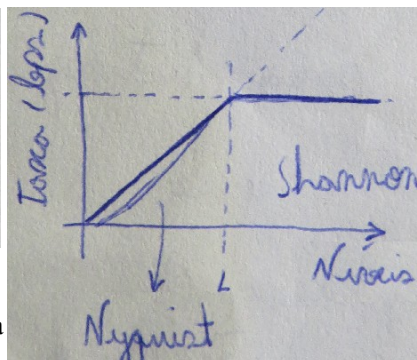 Taxa (bps)
Shannon
Níveis
L
Nyquist
a